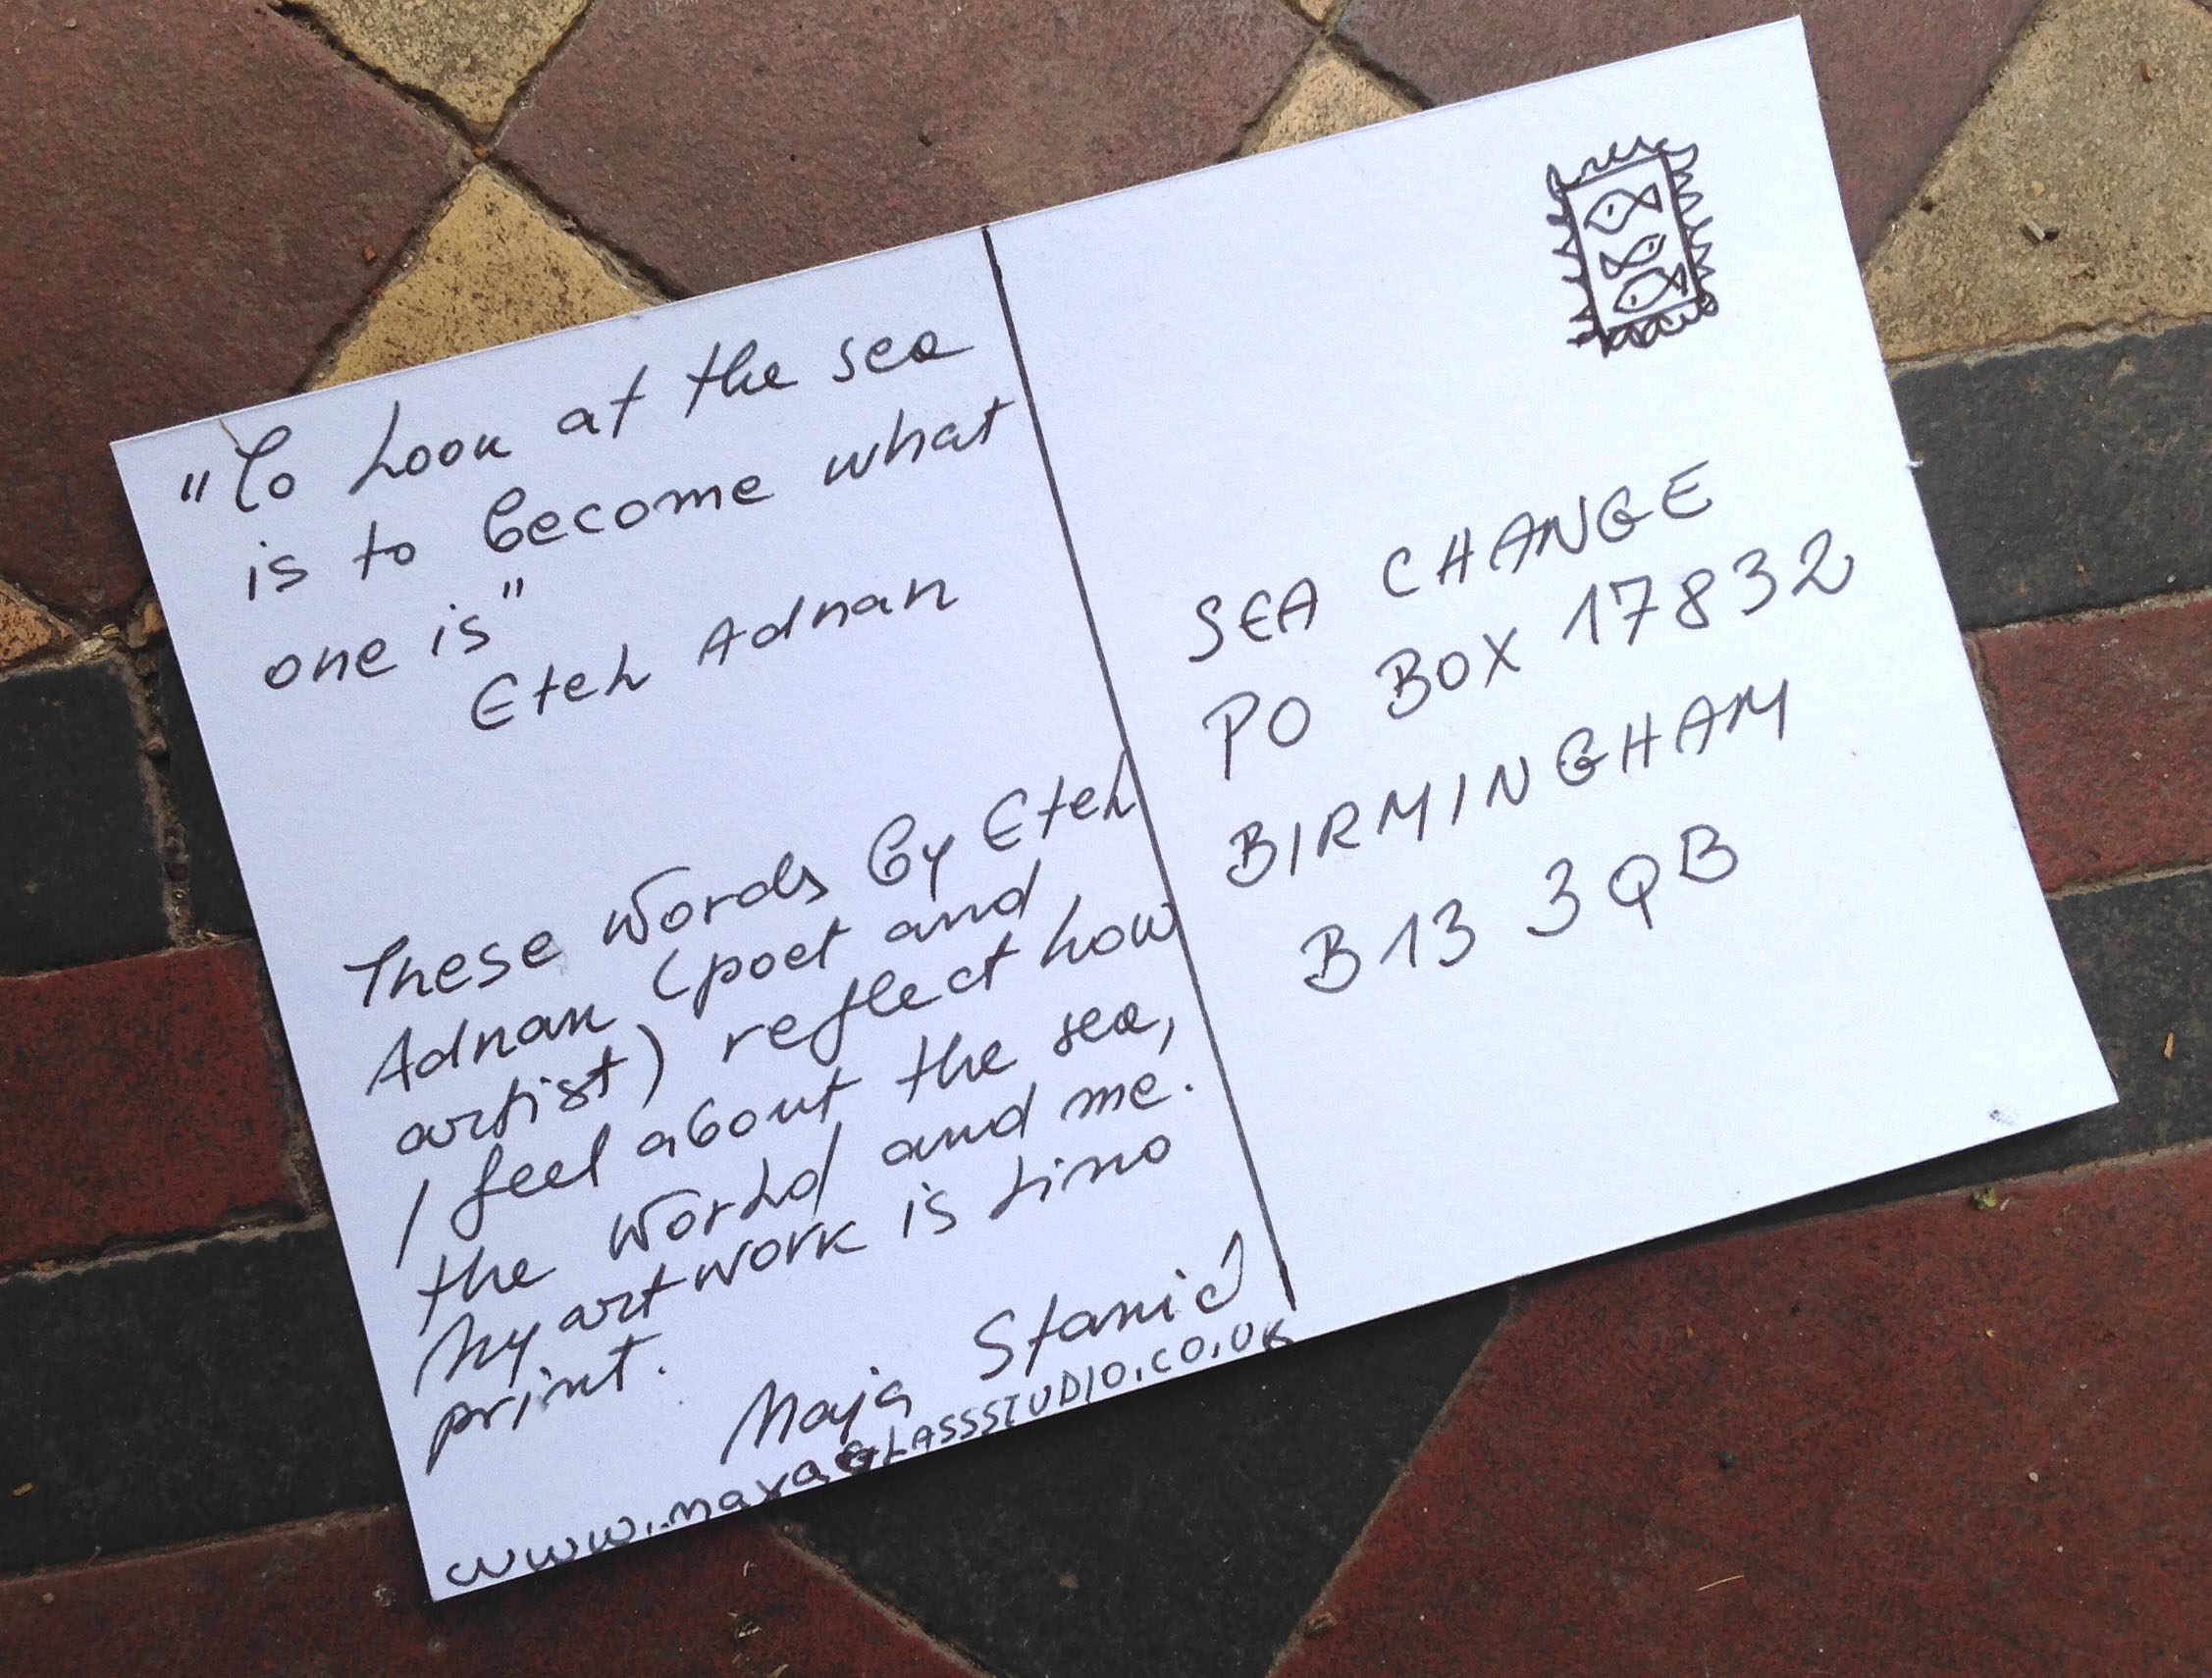 "To look at the sea
is to become what
one is"
Etel Adnan
These words by Etel
Adnan (poet and
artist) reflect how
I feel about the sea,
the world and me.
My artwork is lino
print.
Maja Stanić
www.mayaglassstudio.co.uk
SEA CHANGE
PO BOX 17832
BIRMINGHAM
B13 3QB